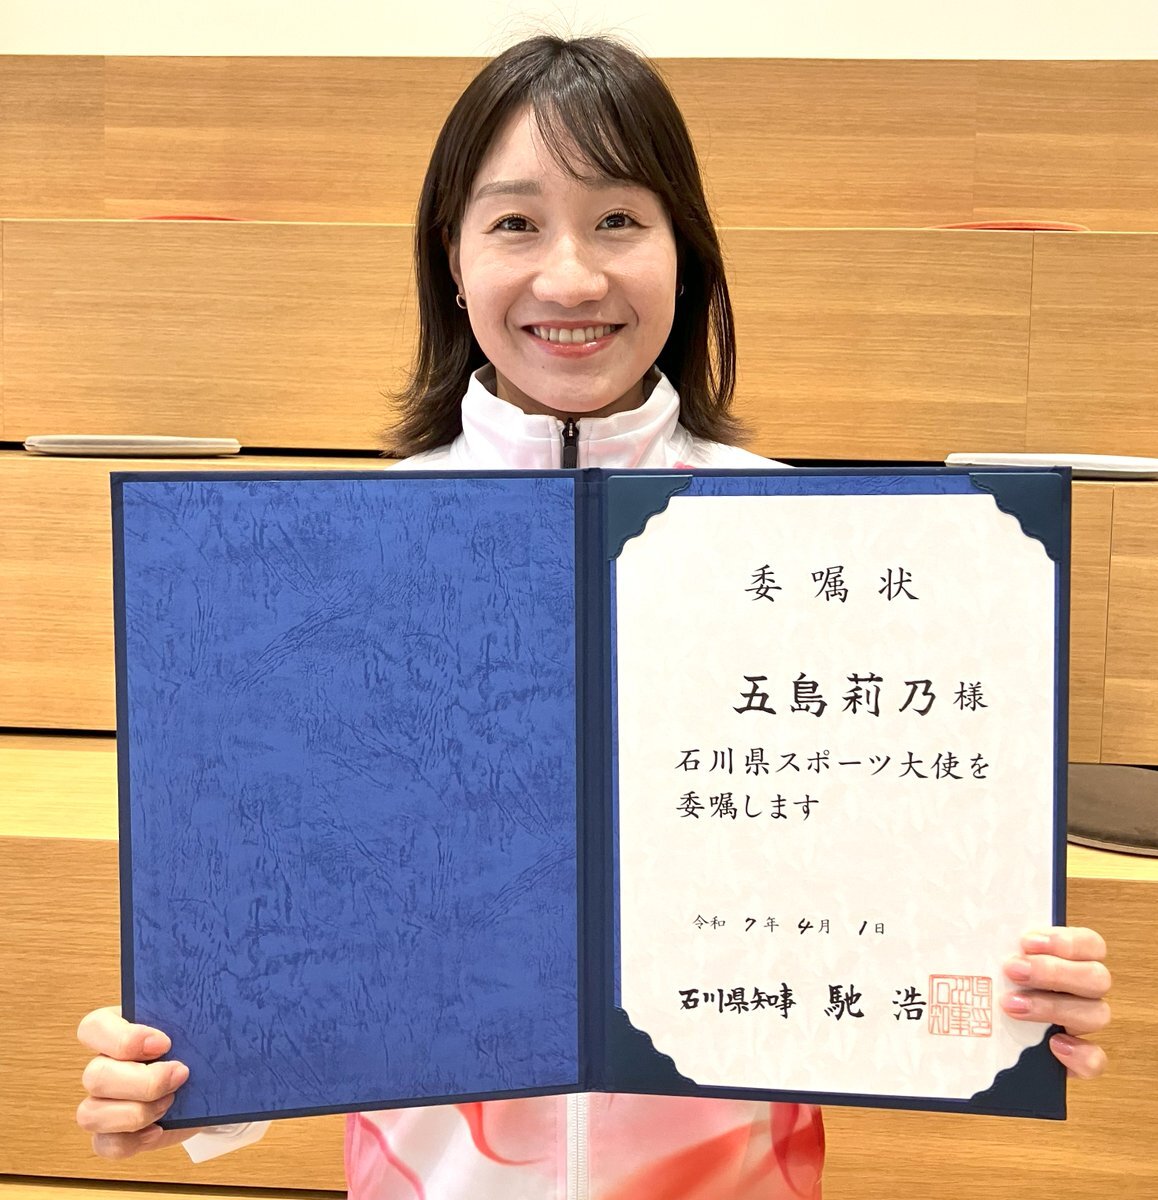 委嘱状
五島莉乃様
石川県スポーツ大使を
委嘱します
令和 7年 4月 1日
石川県知事 馳 浩
石川県知事之印